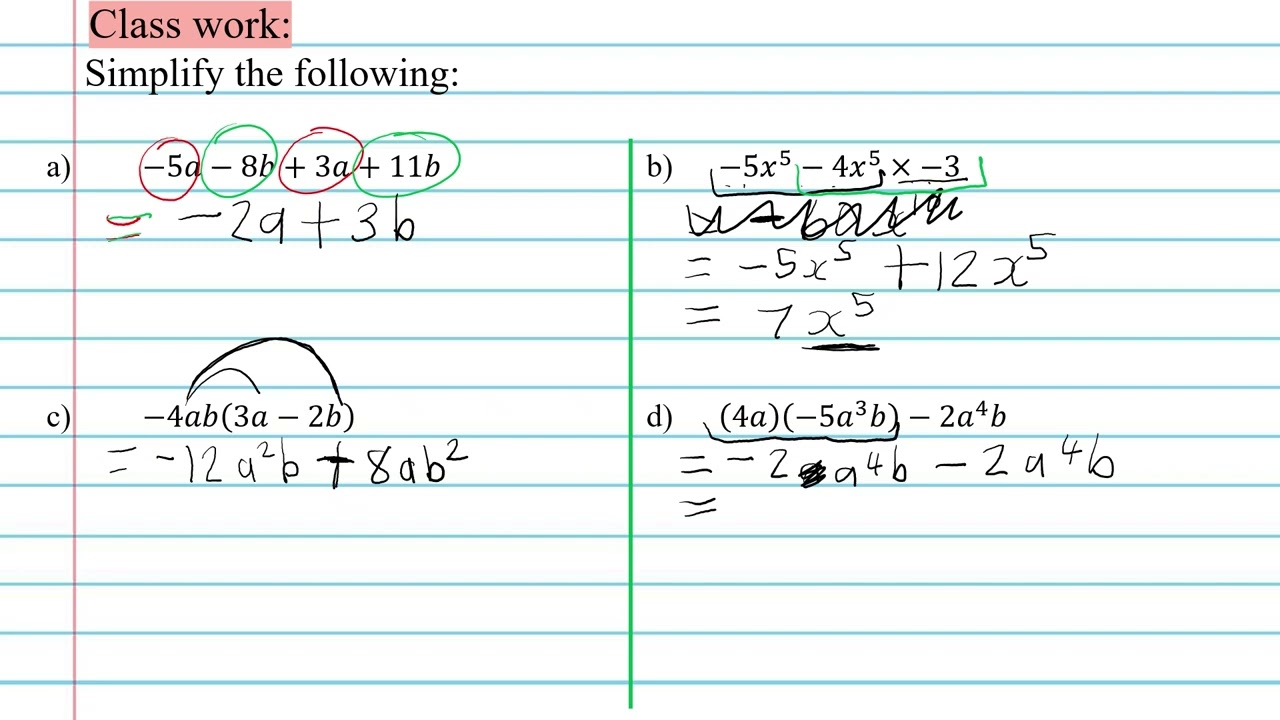 Class work:
Simplify the following:
a) −5a − 8b + 3a + 11b
= −2a + 3b
b) −5x⁵ − 4x⁵ × −3
= −5x⁵ + 12x⁵
= 7x⁵
c) −4ab(3a − 2b)
= −12a²b + 8ab²
d) (4a)(−5a³b) − 2a⁴b
= −2 a⁴b − 2a⁴b
=